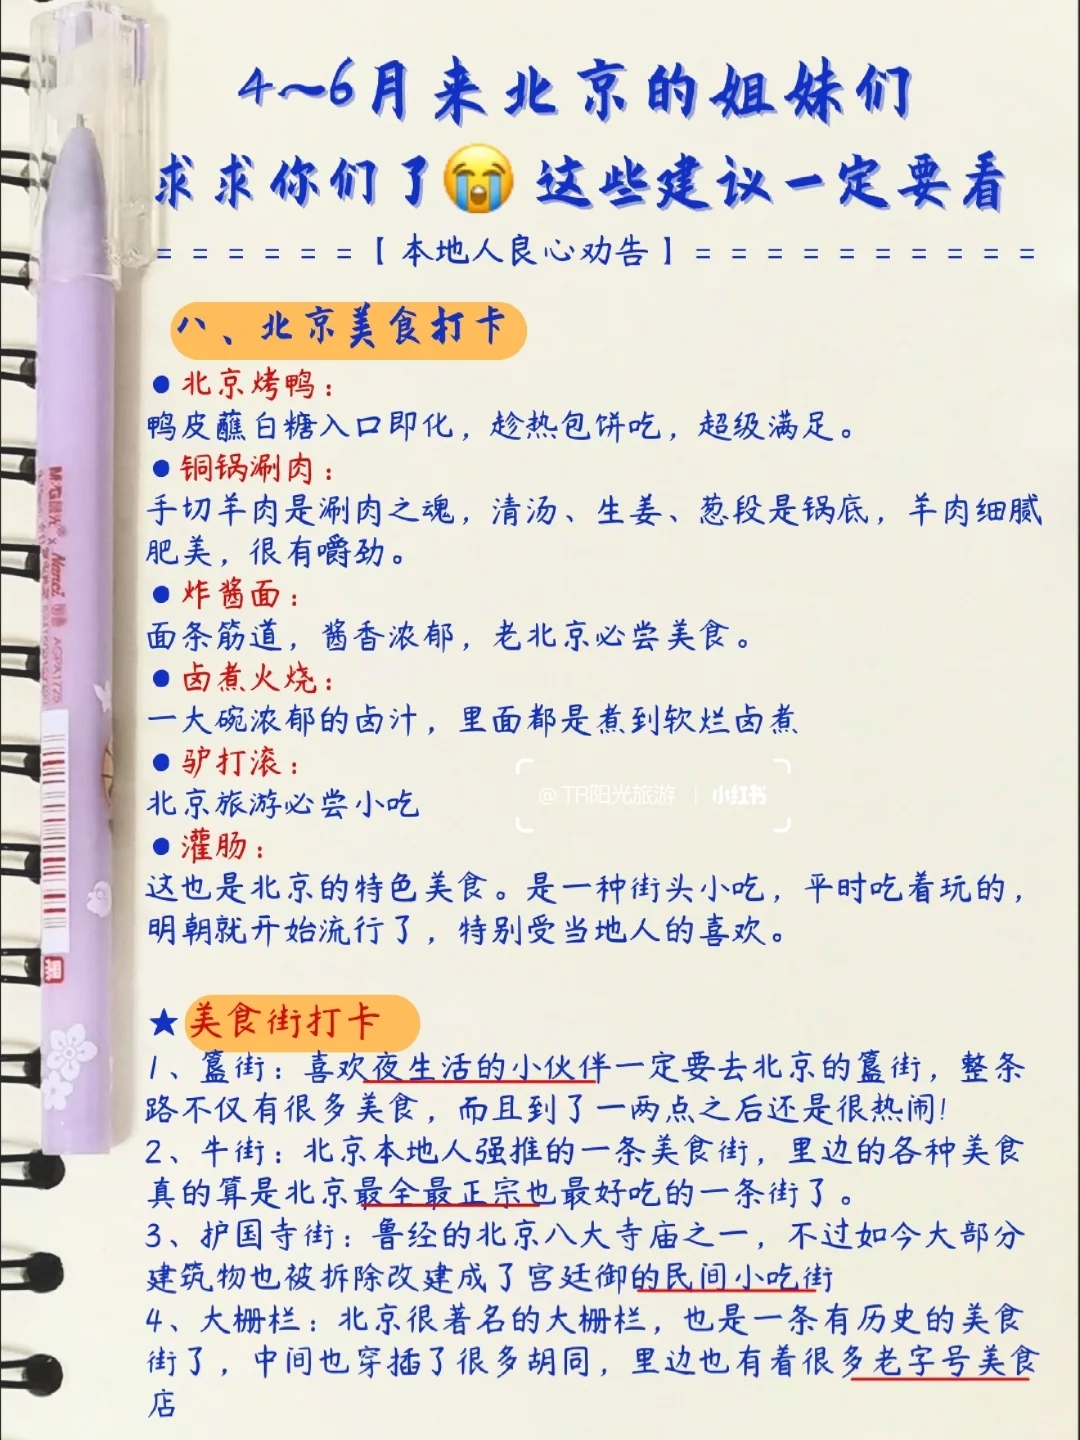 4~6月来北京的姐妹们
求求你们了😭这些建议一定要看
======【本地人良心劝告】==========
八、北京美食打卡
●北京烤鸭：
鸭皮蘸白糖入口即化，趁热包饼吃，超级满足。
●铜锅涮肉：
手切羊肉是涮肉之魂，清汤、生姜、葱段是锅底，羊肉细腻
肥美，很有嚼劲。
●炸酱面：
面条筋道，酱香浓郁，老北京必尝美食。
●卤煮火烧：
一大碗浓郁的卤汁，里面都是煮到软烂卤煮
●驴打滚：
北京旅游必尝小吃
@TR阳光旅游 | 小红书
●灌肠：
这也是北京的特色美食。是一种街头小吃，平时吃着玩的，
明朝就开始流行了，特别受当地人的喜欢。
★美食街打卡
1、簋街：喜欢夜生活的小伙伴一定要去北京的簋街，整条
路不仅有很多美食，而且到了一两点之后还是很热闹！
2、牛街：北京本地人强推的一条美食街，里边的各种美食
真的算是北京最全最正宗也最好吃的一条街了。
3、护国寺街：鲁经的北京八大寺庙之一，不过如今大部分
建筑物也被拆除改建成了宫廷御的民间小吃街
4、大栅栏：北京很著名的大栅栏，也是一条有历史的美食
街了，中间也穿插了很多胡同，里边也有着很多老字号美食
店
M&G晨光®
x
Nanci
AGPA1725